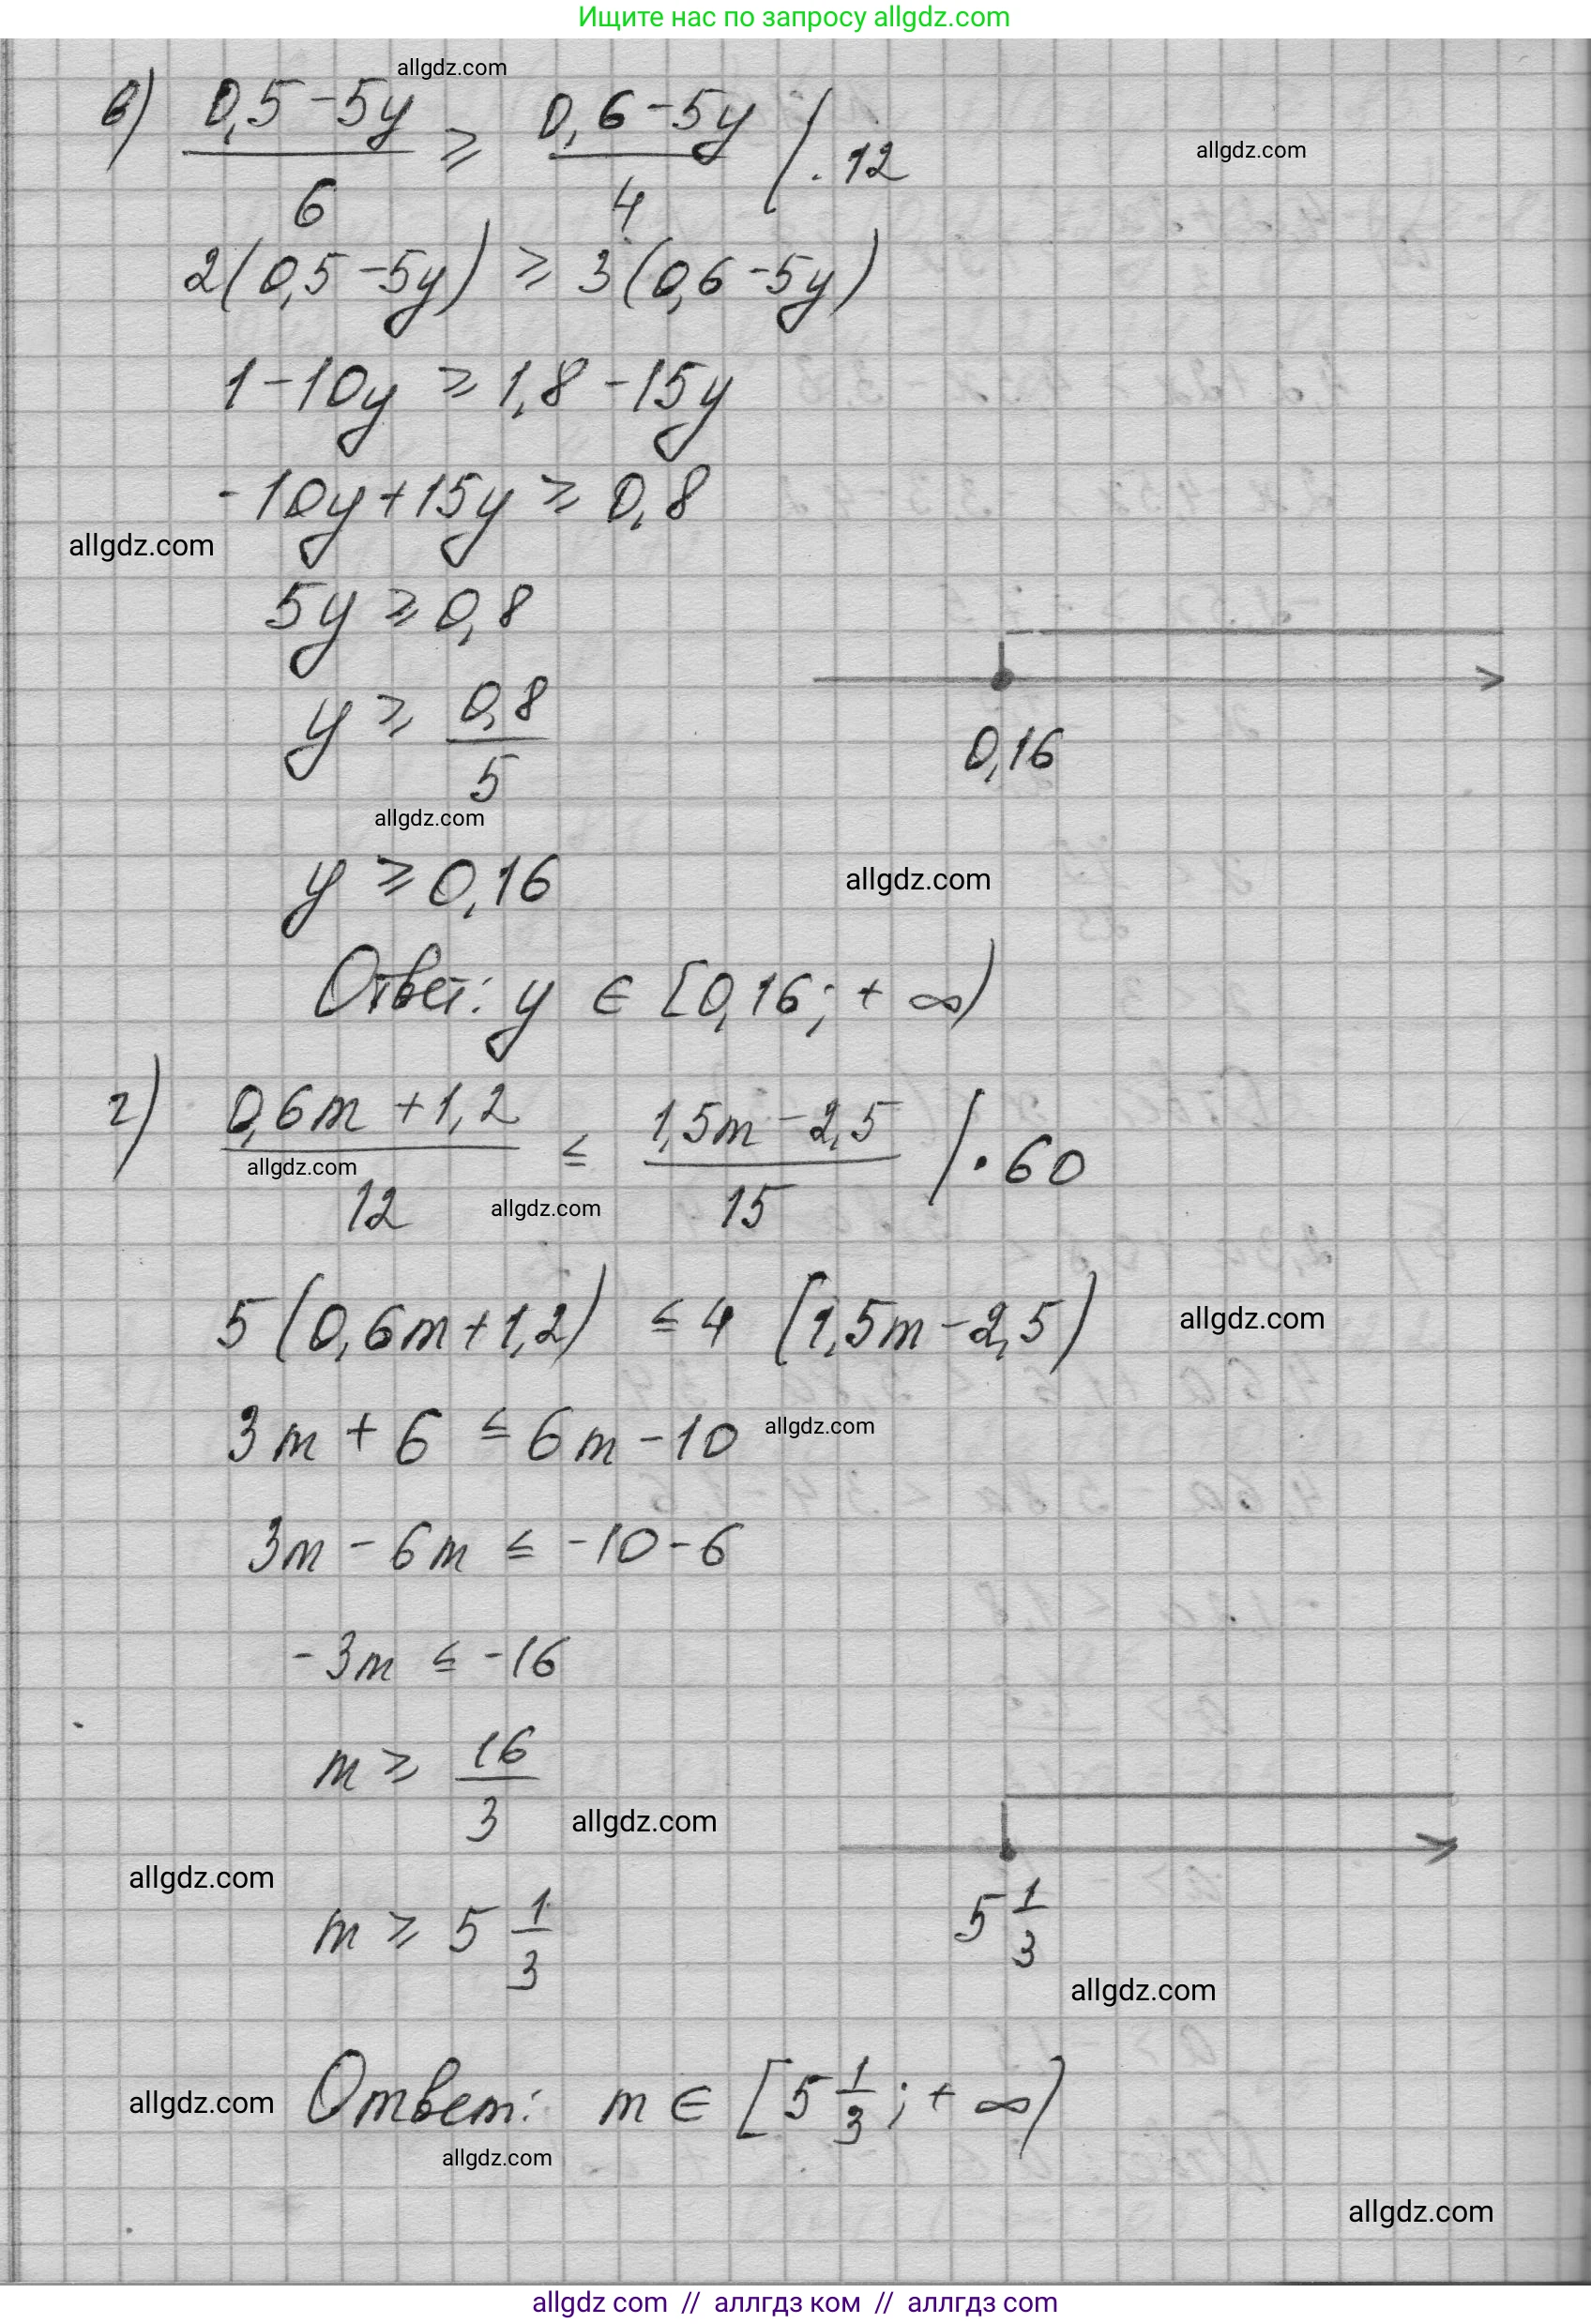 Ищите нас по запросу allgdz.com
allgdz.com
в) (0,5 - 5y)/6 ≥ (0,6 - 5y)/4 / · 12
allgdz.com
2(0,5 - 5y) ≥ 3(0,6 - 5y)
1 - 10y ≥ 1,8 - 15y
-10y + 15y ≥ 0,8
allgdz.com
5y ≥ 0,8
y ≥ 0,8/5
0,16
allgdz.com
y ≥ 0,16
allgdz.com
Ответ: y ∈ [0,16; + ∞)
г) (0,6m + 1,2)/12 ≤ (1,5m - 2,5)/15 / · 60
allgdz.com
allgdz.com
5(0,6m + 1,2) ≤ 4 (1,5m - 2,5)
allgdz.com
3m + 6 ≤ 6m - 10
allgdz.com
3m - 6m ≤ -10 - 6
-3m ≤ -16
m ≥ 16/3
allgdz.com
allgdz.com
m ≥ 5 1/3
5 1/3
allgdz.com
allgdz.com
Ответ: m ∈ [5 1/3; + ∞)
allgdz.com
allgdz.com
allgdz.com // аллгдз ком // аллгдз com